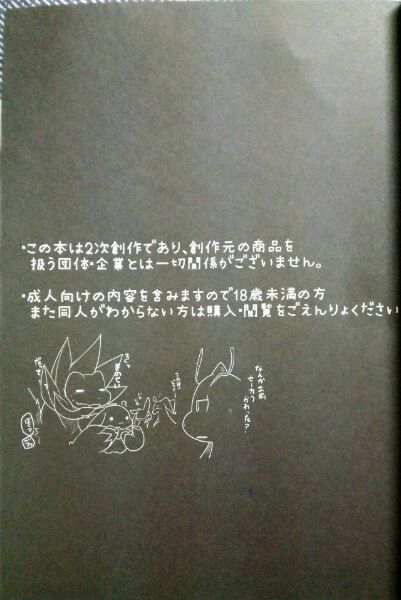 ・この本は2次創作であり、創作元の商品を
扱う団体・企業とは一切関係がございません。
・成人向けの内容を含みますので18歳未満の方
また同人がわからない方は購入・閲覧をごえんりょください
なんかお前
セーカク
かわった?